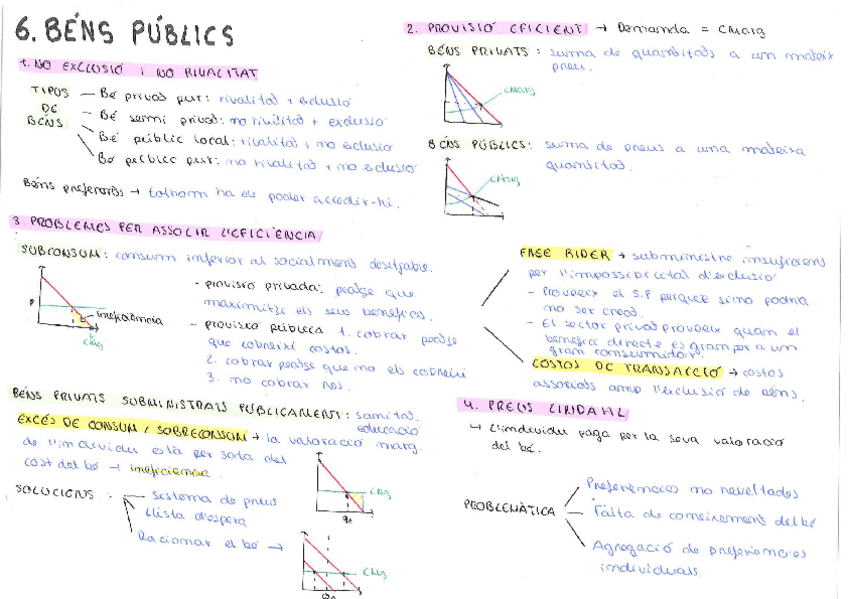 6. BÉNS PÚBLICS
1. NO EXCLUSIÓ I NO RIVALITAT
TIPOS DE BÉNS
Bé privat pur: rivalitat + exclusió
Bé semi privat: no rivalitat + exclusió
Bé públic local: rivalitat + no exclusió
Bé públic pur: no rivalitat + no exclusió
Béns preferents → tothom ha de poder accedir-hi.
2. PROVISIÓ EFICIENT → Demanda = CMarg
BÉNS PRIVATS: suma de quantitats a un mateix
preu.
CMarg
BÉNS PÚBLICS: suma de preus a una mateixa
quantitat.
CMarg
3. PROBLEMES PER ASSOLIR L'EFICIÈNCIA
SUBCONSUM: consum inferior al socialment desitjable.
P
ineficiència
CMg
- provisió privada: peatge que
maximitzi els seus beneficis.
- provisió pública 1. cobrar peatge
que cobreixi costos.
2. cobrar peatge que no els cobreixi
3. no cobrar res.
FREE RIDER → subministre insuficient
per l'impossibilitat d'exclusió
- Proveeix el S.P perquè sino podria
no ser creat.
- El sector privat proveeix quan el
benefici directe es gran per a un
gran consumidor.
COSTOS DE TRANSACCIÓ → costos
associats amb l'exclusió de béns.
BÉNS PRIVATS SUBMINISTRATS PÚBLICAMENT: sanitat,
educació
EXCÉS DE CONSUM / SOBRECONSUM → la valoració marg.
de l'individu està per sota del
cost del bé → ineficiencia.
CMg
q0
SOLUCIONS:
sistema de preus
Llista d'espera
Racionar el bé →
CMg
4. PREUS LINDAHL
→ L'individu paga per la seva valoració
del bé.
PROBLEMÀTICA
Preferències no revel·lades
Falta de coneixement del bé
Agregació de preferències
individuals.